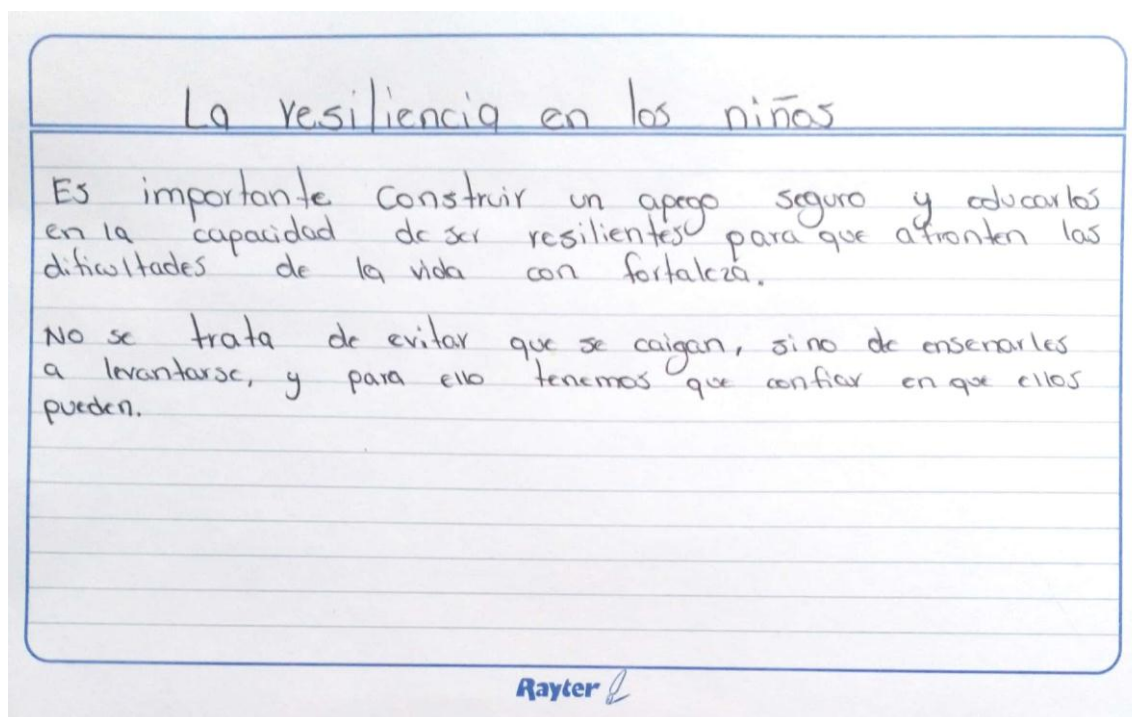 La resiliencia en los niños
Es importante construir un apego seguro y educarlos
en la capacidad de ser resilientes para que afronten las
dificultades de la vida con fortaleza.
No se trata de evitar que se caigan, sino de enseñarles
a levantarse, y para ello tenemos que confiar en que ellos
pueden.
Rayter